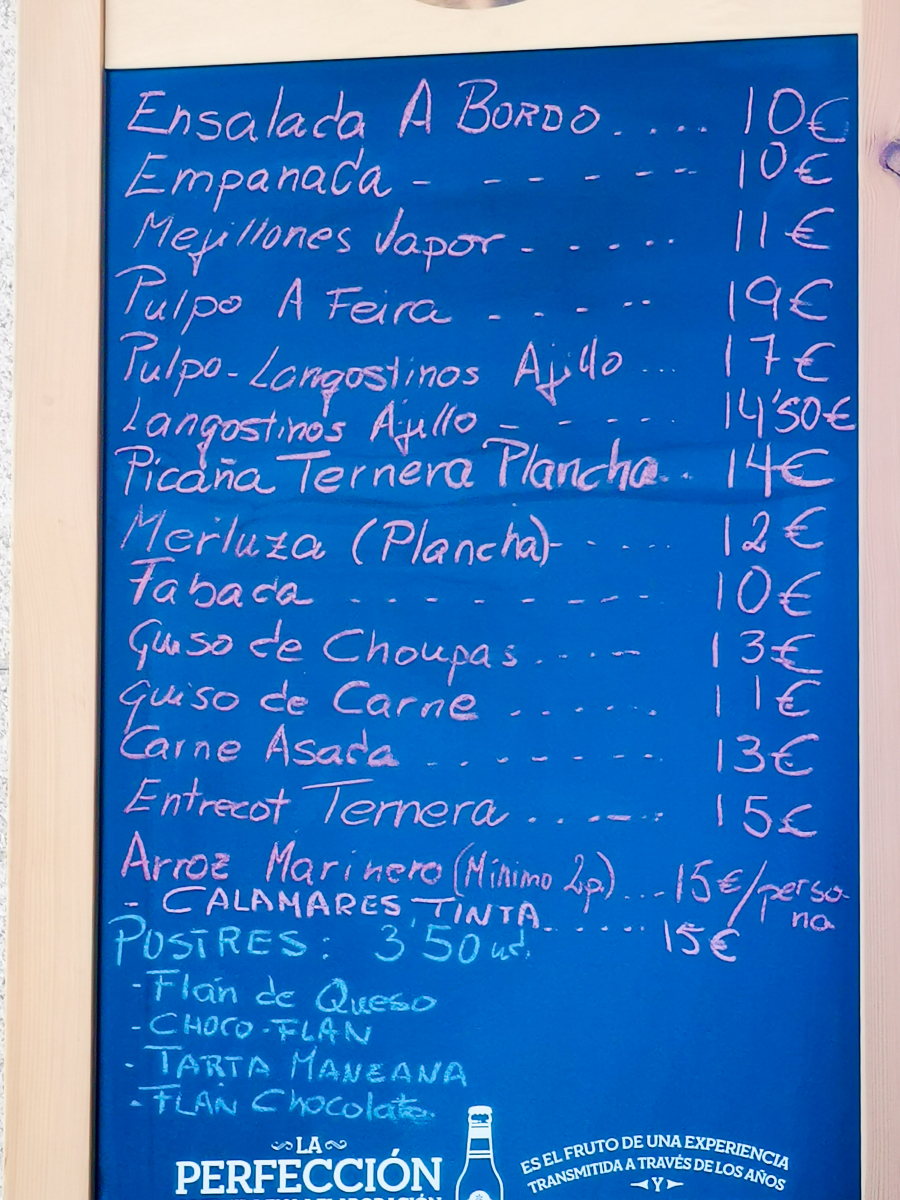 Ensalada A BORDO.... 10€
Empanada - - - - - -- 10€
Mejillones Vapor - - - - .. 11€
Pulpo A Feira - - - -- 19€
Pulpo-Langostinos Ajillo ... 17€
Langostinos Ajillo - - - - - 14'50€
Picaña Ternera Plancha.. 14€
Merluza (Plancha)- - - - - 12€
Fabada - - - - - - - - 10€
Guiso de Choupas....-- 13€
guiso de Carne ...... 11€
Carne Asada . - - - - - - 13€
Entrecot Ternera ....--. 15€
Arroz Marinero (Mínimo 2p.) ...15€/perso-
na
- CALAMARES TINTA...... 15€
POSTRES: 3'50 ud.
-Flan de Queso
-CHOCO-FLAN
- TARTA MANZANA
-FLAN Chocolate.
LA
PERFECCIÓN
ES EL FRUTO DE UNA EXPERIENCIA
TRANSMITIDA A TRAVÉS DE LOS AÑOS
Y